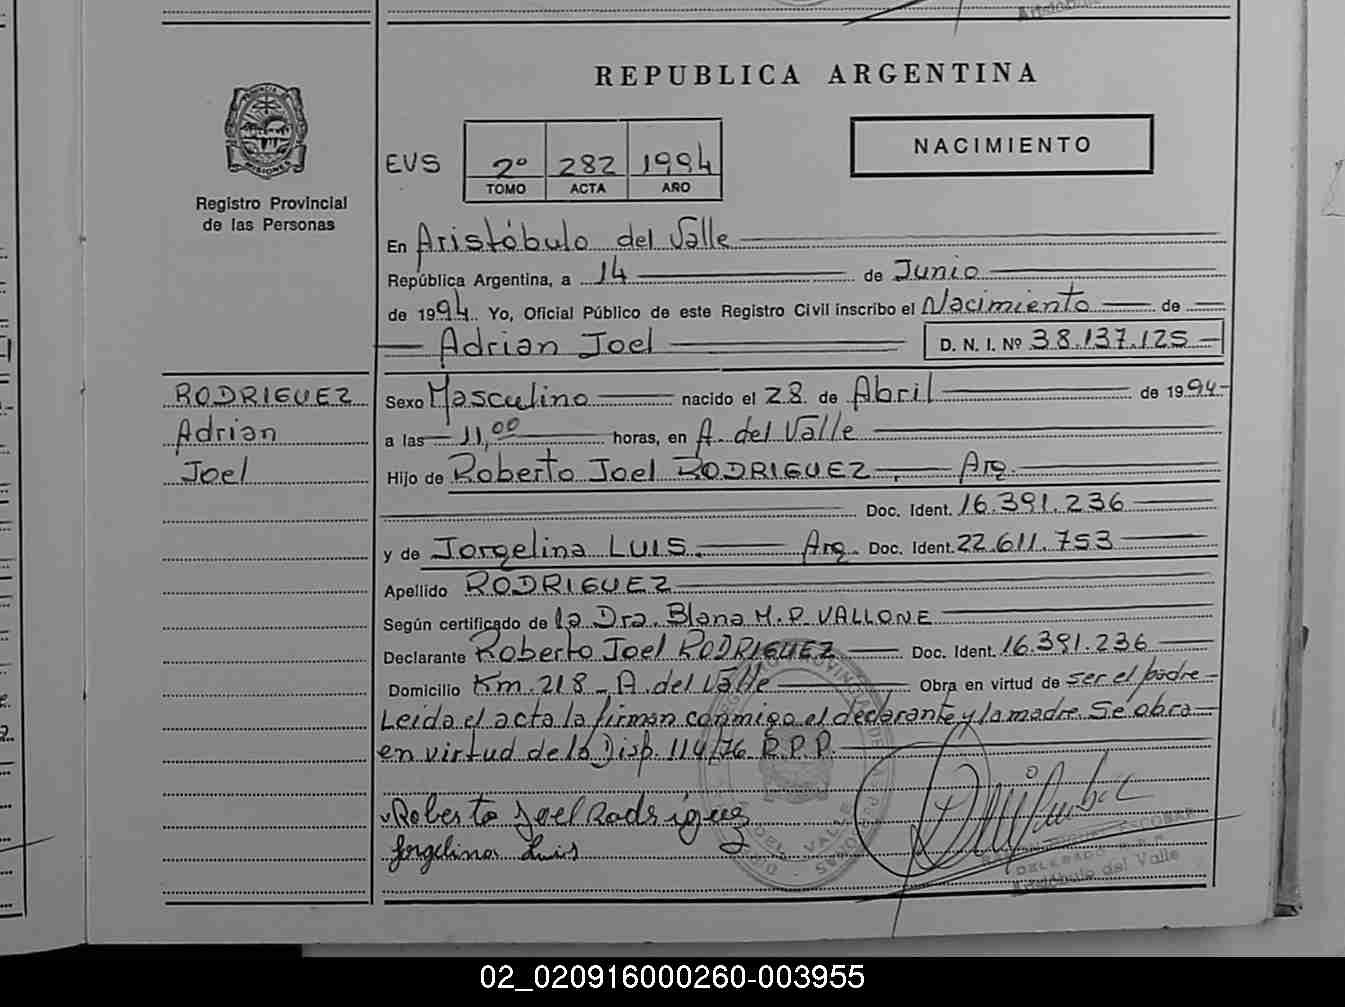 REPUBLICA ARGENTINA
NACIMIENTO
EVS 2º 282 1994
TOMO ACTA AÑO
Registro Provincial
de las Personas
En Aristóbulo del Valle
República Argentina, a 14 de Junio
de 1994. Yo, Oficial Público de este Registro Civil inscribo el Nacimiento de
Adrian Joel D. N. I. Nº 38.137.125
RODRIGUEZ
Adrian
Joel
Sexo Masculino nacido el 28 de Abril de 1994
a las 11,00 horas, en A. del Valle
Hijo de Roberto Joel RODRIGUEZ, Arg.
Doc. Ident. 16.391.236
y de Jorgelina LUIS. Arg. Doc. Ident. 22.611.753
Apellido RODRIGUEZ
Según certificado de la Dra. Blana M. P. VALLONE
Declarante Roberto Joel RODRIGUEZ Doc. Ident. 16.391.236
Domicilio Km. 218 - A. del Valle Obra en virtud de ser el padre
Leida el acta la firman conmigo el declarante y la madre. Se obra
en virtud de la Disp. 114/76 R.P.P.
Roberto Joel Rodriguez
Jorgelina Luis
ESCOBAR
DELEGADO
Aristóbulo del Valle
02_020916000260-003955